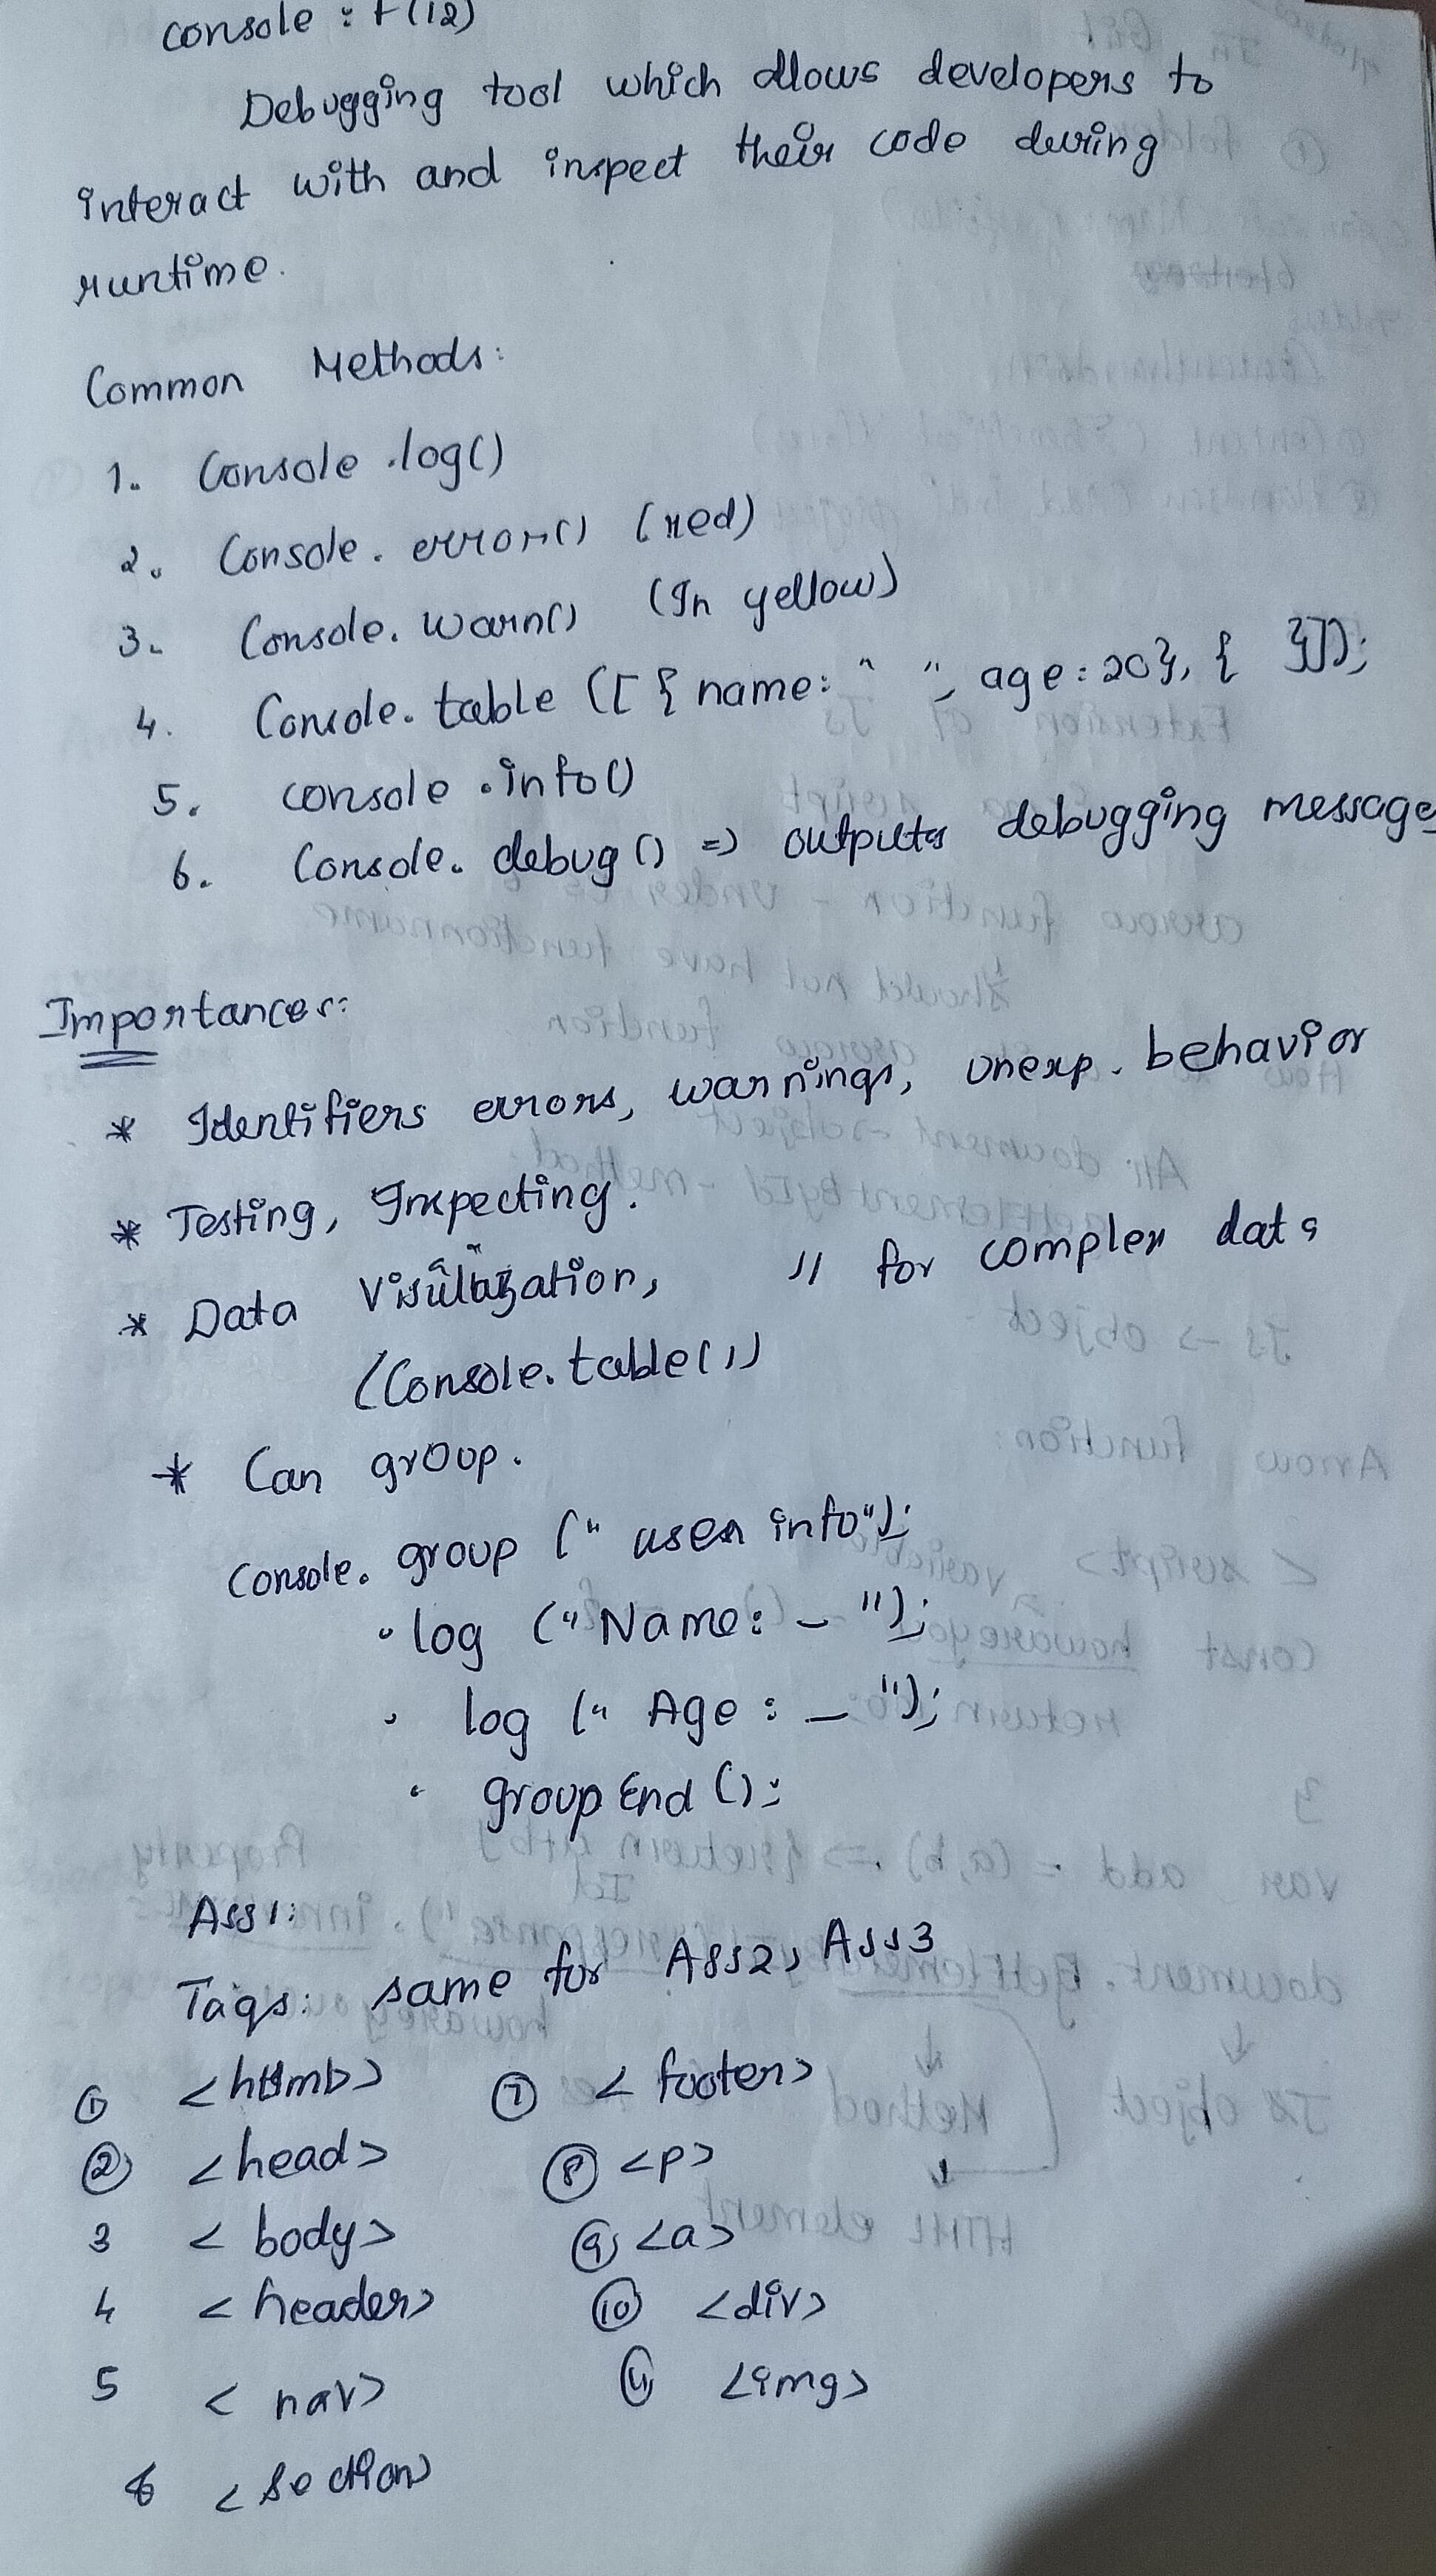 console : F(12)
Debugging tool which allows developers to
interact with and inspect their code during
runtime.
Common Methods:
1. Console .log()
2. Console. error() (red)
3. Console. warn() (In yellow)
4. Console. table ([ { name: " ", age : 20}, { }]);
5. console .info()
6. Console. debug () => outputs debugging message
Importances:
* Identifiers errors, warnings, unexp. behavior
* Testing, Inspecting.
* Data , // for complex data
(Console.table())
* Can group.
Console. group (" user info");
. log ("Name: _ ");
. log (" Age : _ ");
. groupEnd ();
Ass1:
Tags: same for Ass2, Ass3
① <html> ⑦ < footer>
② <head> ⑧ <p>
3 < body> ⑨ <a>
4 < header> ⑩ <div>
5 < nav> ⑪ <img>
6 < section>